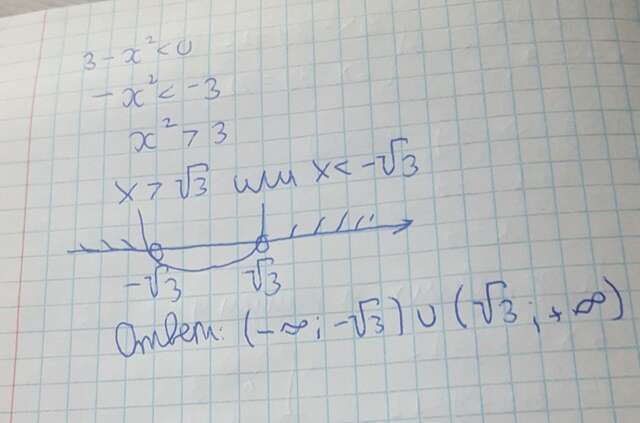 3 - x² < 0
- x² < -3
x² > 3
x > √3 или x < -√3
-√3 √3
Ответ: (-∞; -√3) ∪ (√3; +∞)